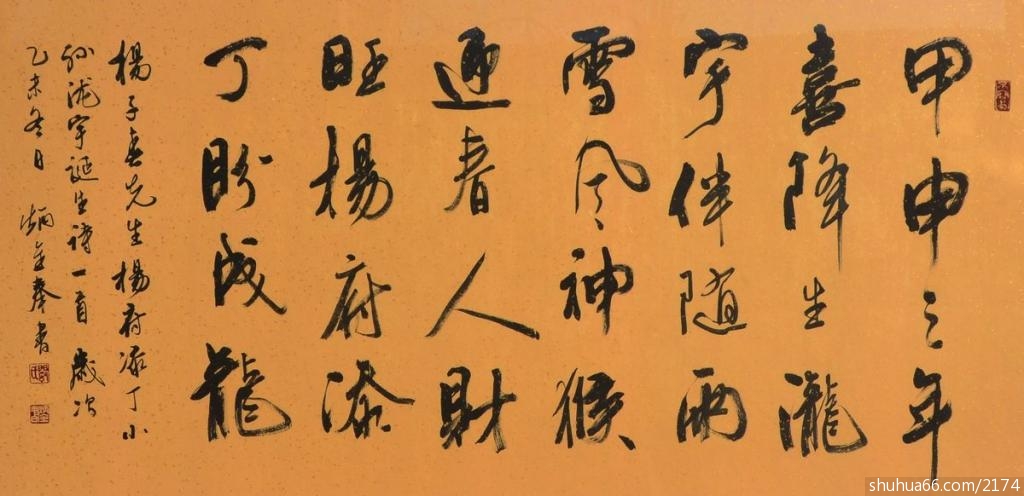 甲申之年
喜降生瀧
宇伴随雨
雪風神猴
迎春人財
旺楊府添
丁盼成龍
楊子春先生楊府添丁小
孙瀧宇誕生詩一首 歲次
乙未冬日 炳
書
shuhua66.com/2174